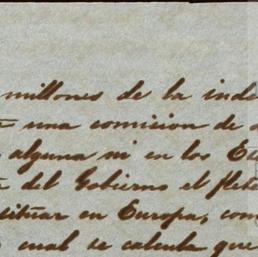 millones de la inde
una comision de
alguna ni en los Es
del Gobierno el flete
situar en Europa, com
cual se calcula que